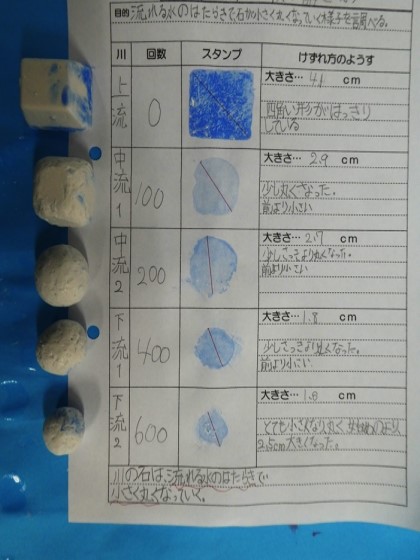 目的 流れる水のはたらきで石が小さく丸くなっていく様子を調べる。
川 回数 スタンプ けずれ方のようす
上流 0 大きさ… 4.1 cm
四角い形がはっきり
している
中流1 100 大きさ… 2.9 cm
少し丸くなった。
前より小さい
中流2 200 大きさ… 2.7 cm
少しさっきより丸くなった。
前より小さい
下流1 400 大きさ… 1.8 cm
少しさっきより丸くなった。
前より小さい
下流2 600 大きさ…
とても小さくなり丸く
2.5cm大きくなった。
川の石は、流れる水のはたらきで
小さく丸くなっていく。